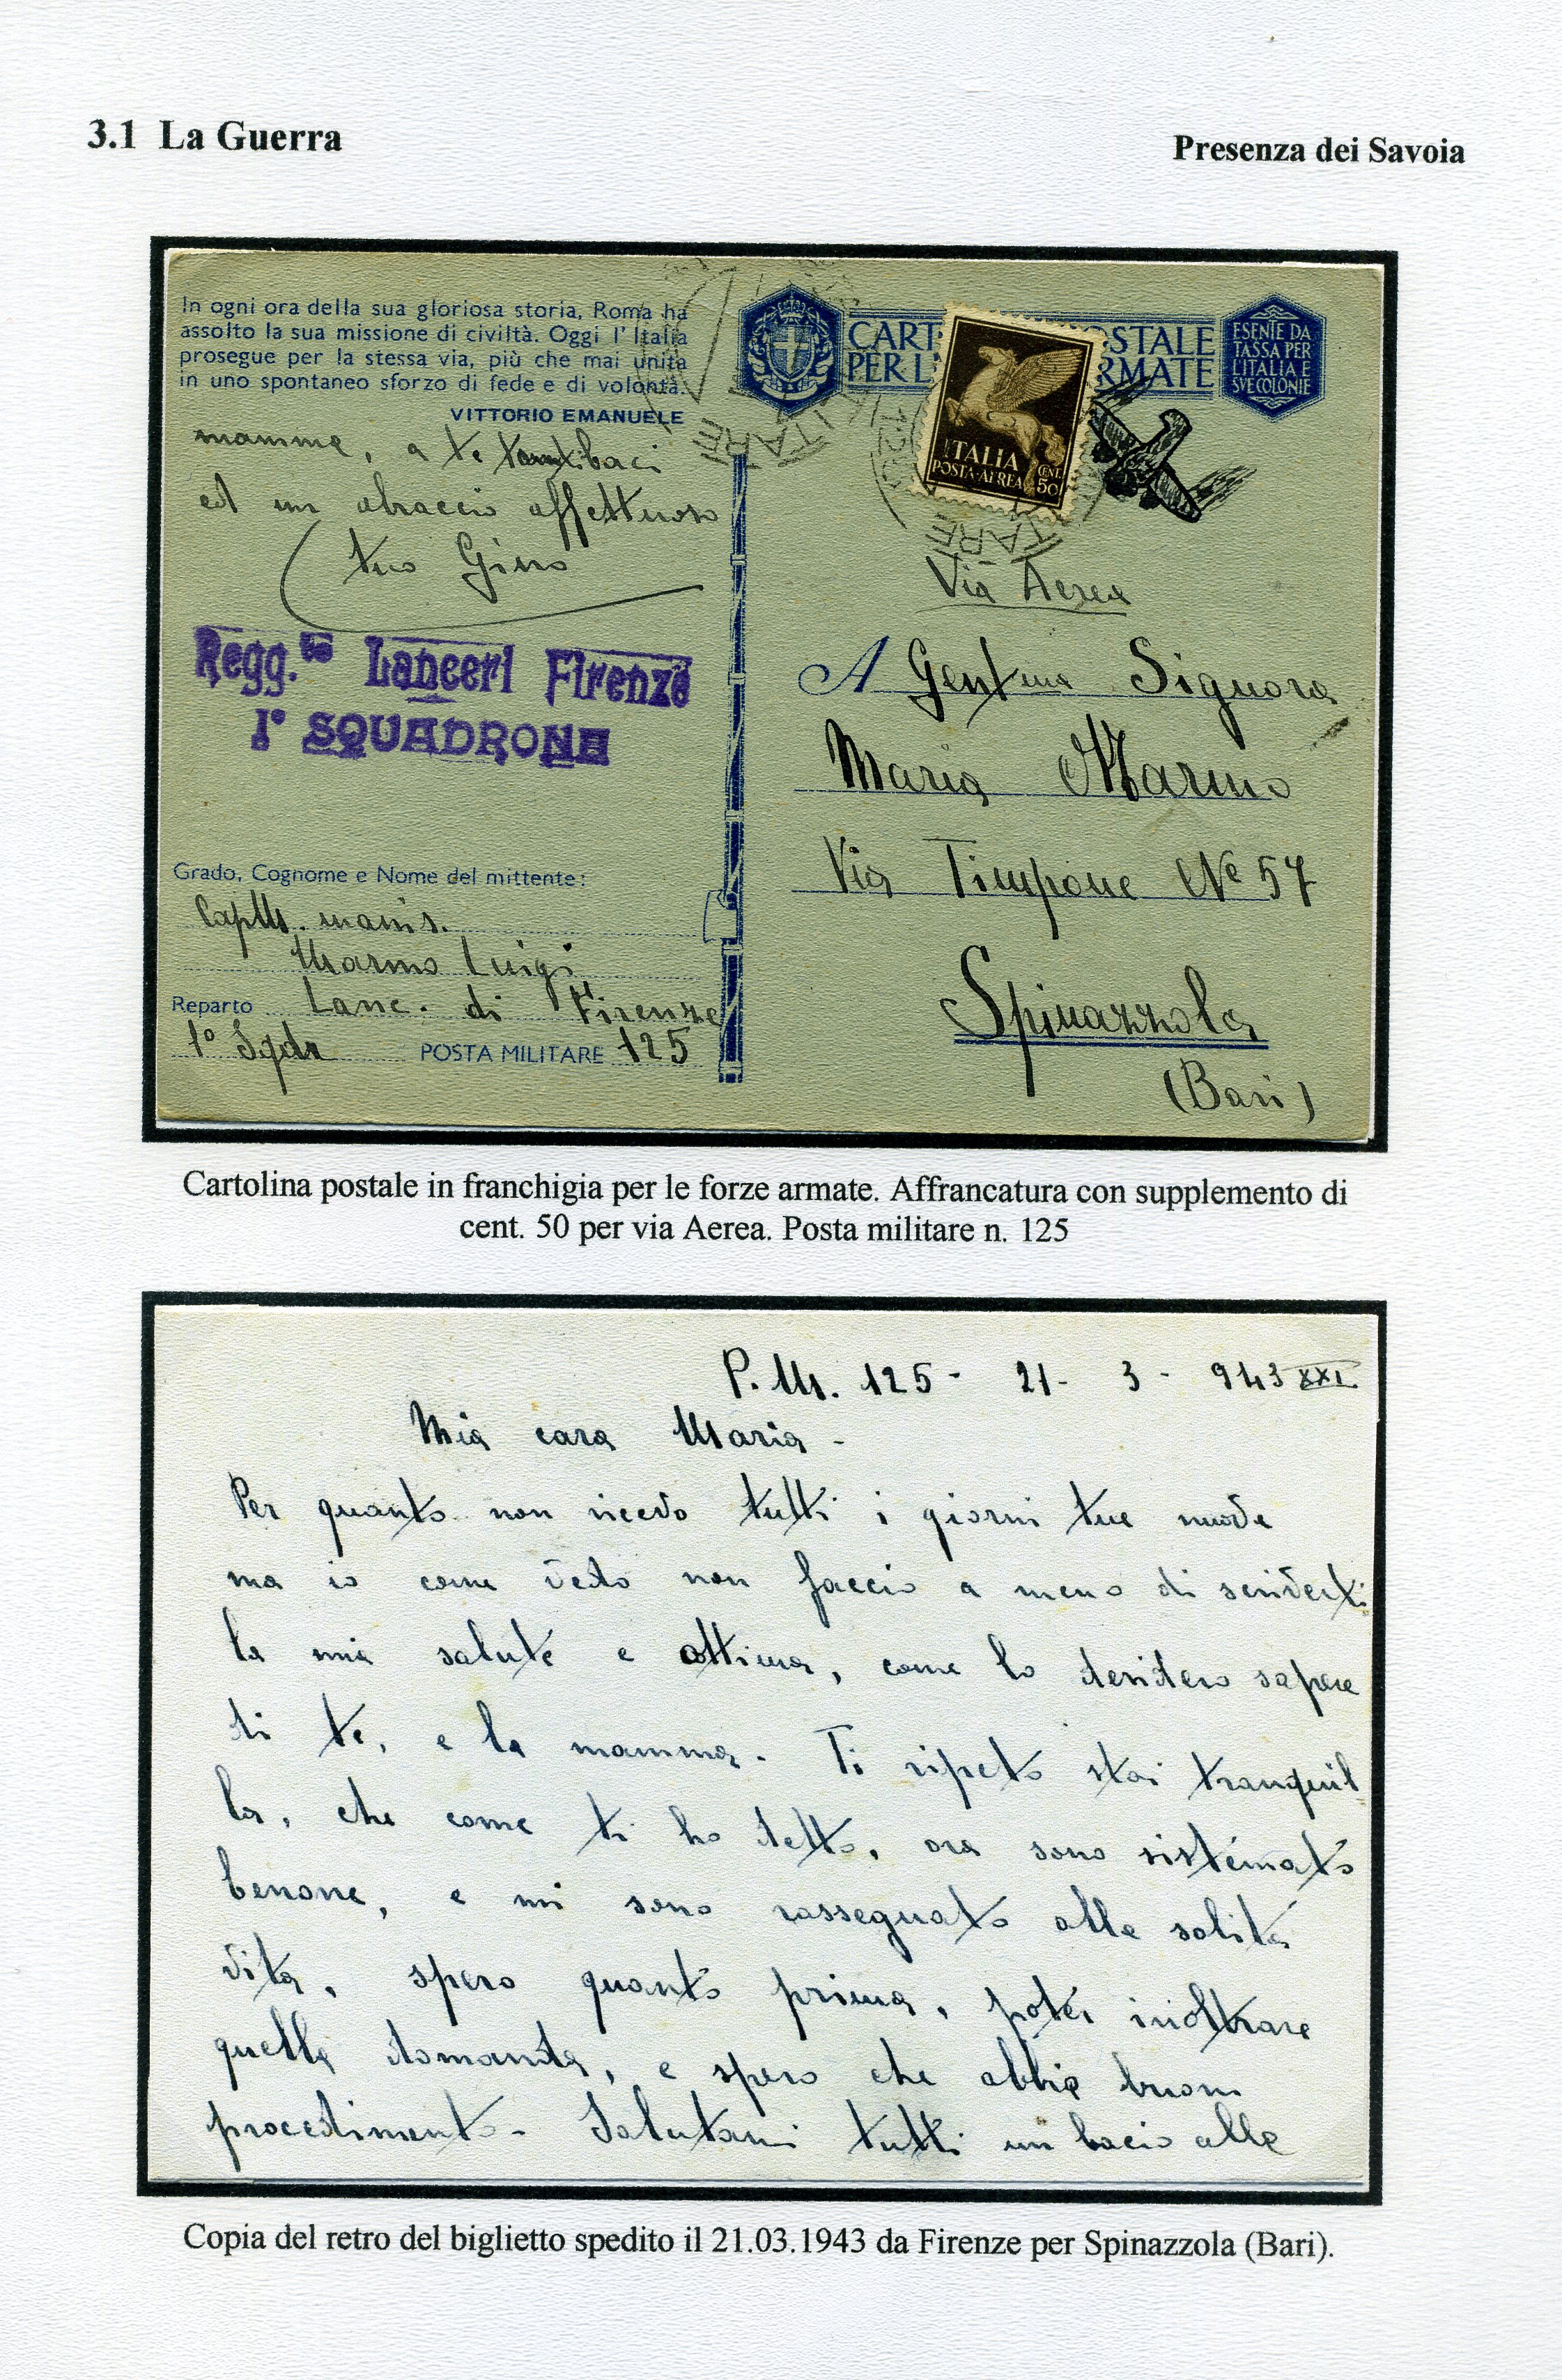 3.1 La Guerra
Presenza dei Savoia
In ogni ora della sua gloriosa storia, Roma ha
assolto la sua missione di civiltà. Oggi l'Italia
prosegue per la stessa via, più che mai unita
in uno spontaneo sforzo di fede e di volontà.
VITTORIO EMANUELE
mamma, a te tanti baci
ed un abraccio affettuoso
tuo Gino
Regg.to Lanceri Firenze
1° SQUADRONE
Grado, Cognome e Nome del mittente:
Cap. M. manis.
Marmo Luigi
Reparto Lanc. di Firenze
1° Sqdr POSTA MILITARE 125
CART STALE
PER L' RMATE
ESENTE DA
TASSA PER
L'ITALIA E
SVE COLONIE
ITALIA
POSTA AEREA CENT. 50
TARE
TARE
Via Aerea
A Gent.ma Signora
Maria Marmo
Via Timpone No 57
Spinazzola
(Bari)
Cartolina postale in franchigia per le forze armate. Affrancatura con supplemento di
cent. 50 per via Aerea. Posta militare n. 125
P. M. 125 - 21 - 3 - 943 XXI
Mia cara Maria -
Per quanto non ricevo tutti i giorni tue nuove
ma io come vedo non faccio a meno di scriverti
la mia salute e ottima, come lo desidero sapere
di te, e la mamma. Ti ripeto stai tranquil
la, che come ti ho detto, ora sono sistemato
benone, e mi sono rassegnato alla solita
vita, spero quanto prima, poter inoltrare
quella domanda, e spero che abbia buon
procedimento - Salutami tutti un bacio alla
Copia del retro del biglietto spedito il 21.03.1943 da Firenze per Spinazzola (Bari).